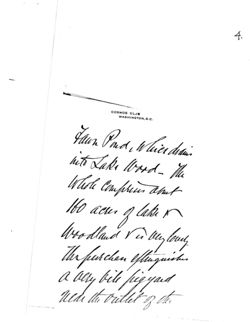 4.
COSMOS CLUB
WASHINGTON, D.C.
Fawn Pond, which drains
into Lake Wood – The
whole comprises about
160 acres of lake &
woodland & is very lovely
The purchase extinguishes
a very vile pig yard
near the outlet of the